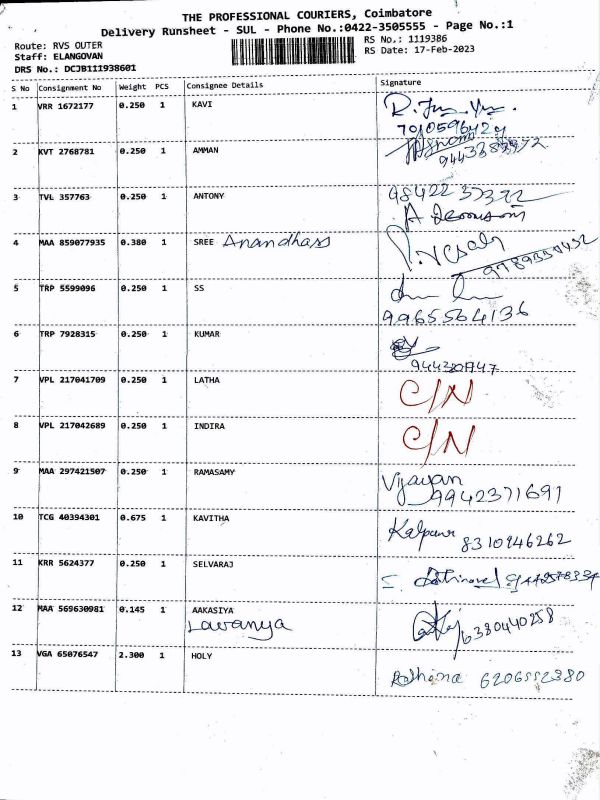 THE PROFESSIONAL COURIERS, Coimbatore
Delivery Runsheet - SUL - Phone No.:0422-3505555 - Page No.:1
Route: RVS OUTER
Staff: ELANGOVAN
DRS No.: DCJB111938601
RS No.: 1119386
RS Date: 17-Feb-2023
S No Consignment No Weight PCS Consignee Details Signature
1 VRR 1672177 0.250 1 KAVI
2 KVT 2768781 0.250 1 AMMAN
3 TVL 357763 0.250 1 ANTONY
4 MAA 859077935 0.380 1 SREE Anandhass
5 TRP 5599096 0.250 1 SS
9965564136
6 TRP 7928315 0.250 1 KUMAR
7 VPL 217041709 0.250 1 LATHA C/N
8 VPL 217042689 0.250 1 INDIRA C/N
9 MAA 297421507 0.250 1 RAMASAMY Vijayan
9942371691
10 TCG 40394301 0.675 1 KAVITHA 8310946262
11 KRR 5624377 0.250 1 SELVARAJ
12 MAA 569630981 0.145 1 AAKASIYA 6380440258
Lavanya
13 VGA 65076547 2.300 1 HOLY
6206552380